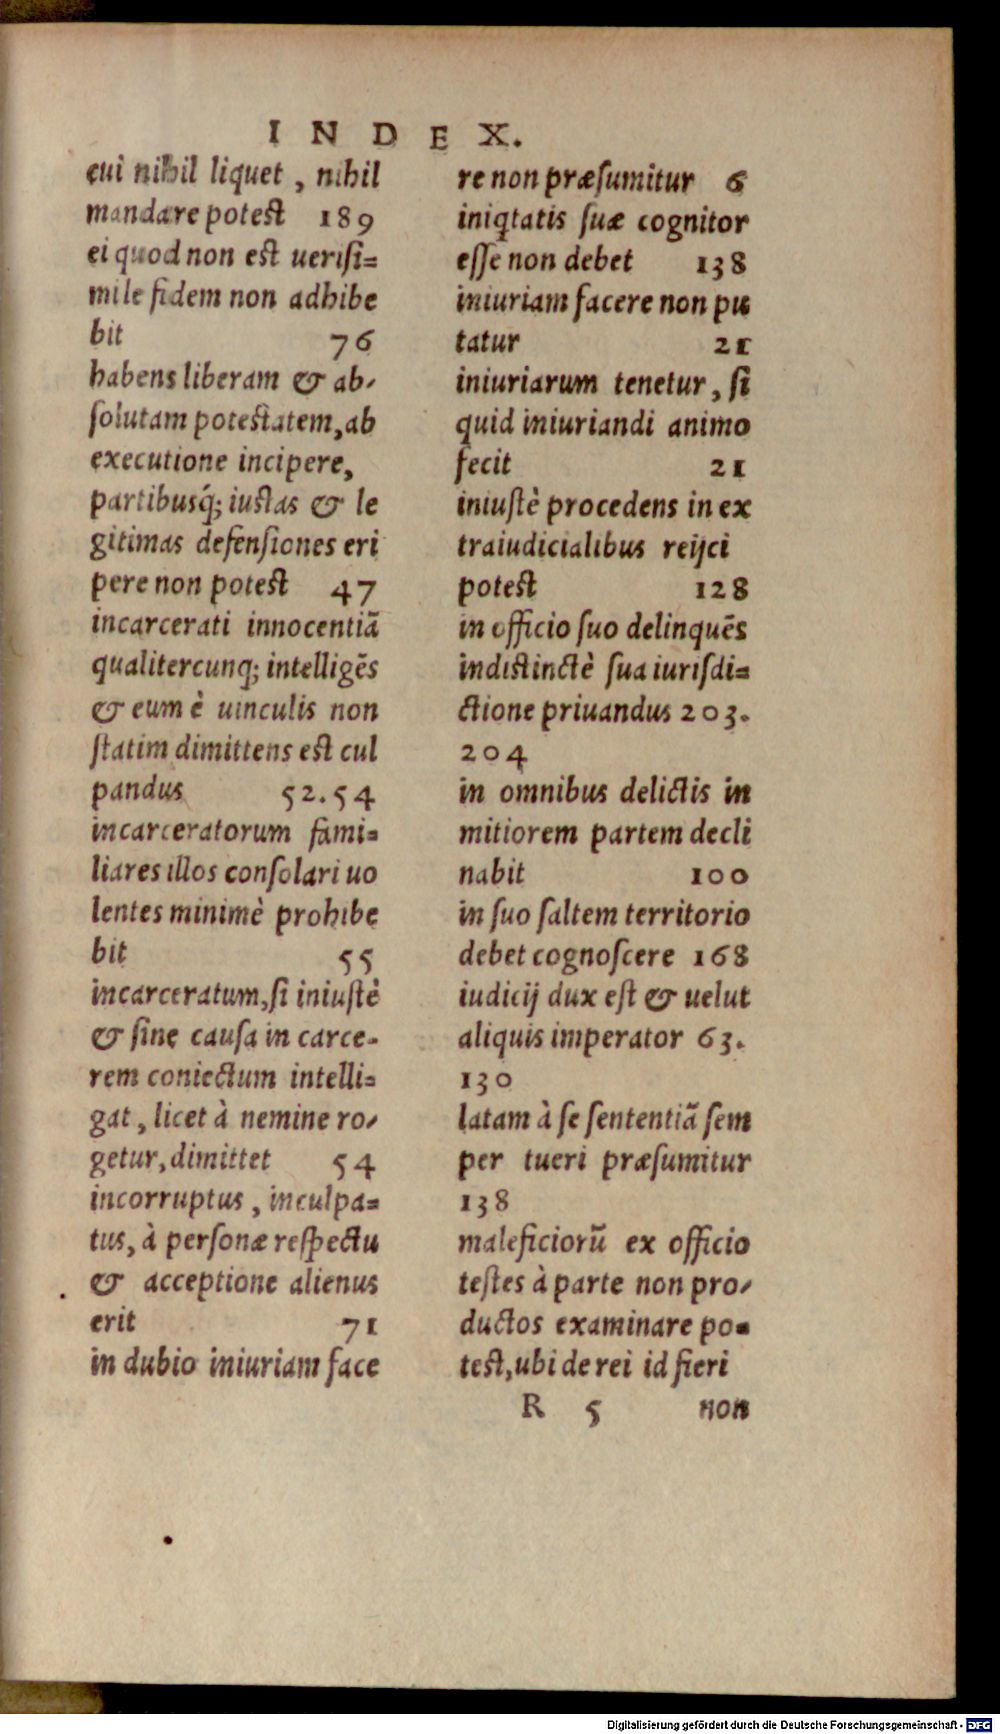 INDEX.
cui nihil liquet, nihil
mandare potest 189
ei quod non est uerisi=
mile fidem non adhibe
bit 76
habens liberam & ab-
solutam potestatem, ab
executione incipere,
partibusq́; iustas & le
gitimas defensiones eri
pere non potest 47
incarcerati innocentiã
qualitercunq; intelligẽs
& eum è uinculis non
statim dimittens est cul
pandus 52.54
incarceratorum fami=
liares illos consolari uo
lentes minimè prohibe
bit 55
incarceratum, si iniustè
& sine causa in carce-
rem coniectum intelli=
gat, licet à nemine ro-
getur, dimittet 54
incorruptus, inculpa=
tus, à personæ respectu
& acceptione alienus
erit 71
in dubio iniuriam face
re non præsumitur 6
iniq̃tatis suæ cognitor
esse non debet 138
iniuriam facere non pu
tatur 21
iniuriarum tenetur, si
quid iniuriandi animo
fecit 21
iniustè procedens in ex
traiudicialibus reijci
potest 128
in officio suo delinquẽs
indistinctè sua iurisdi=
ctione priuandus 203.
204
in omnibus delictis in
mitiorem partem decli
nabit 100
in suo saltem territorio
debet cognoscere 168
iudicij dux est & uelut
aliquis imperator 63.
130
latam à se sententiã sem
per tueri præsumitur
138
maleficiorũ ex officio
testes à parte non pro-
ductos examinare po=
test, ubi de rei id fieri
R 5 non
Digitalisierung gefördert durch die Deutsche Forschungsgemeinschaft - DFG